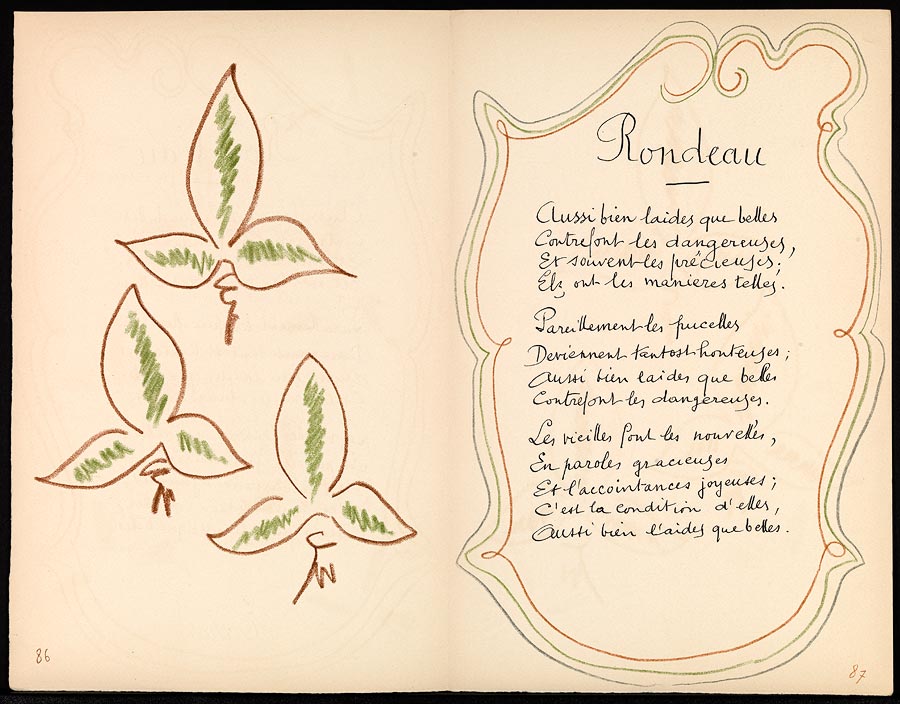 Rondeau
Aussi bien laides que belles
Contrefont les dangereuses,
Et souvent les précieuses;
Elz ont les manières telles.
Pareillement les pucelles
Deviennent tantost honteuses;
Aussi bien laides que belles
Contrefont les dangereuses.
Les vieilles font les nouvelles,
En paroles gracieuses
Et l'accointances joyeuses;
C'est la condition d'elles,
Aussi bien laides que belles.
86
87